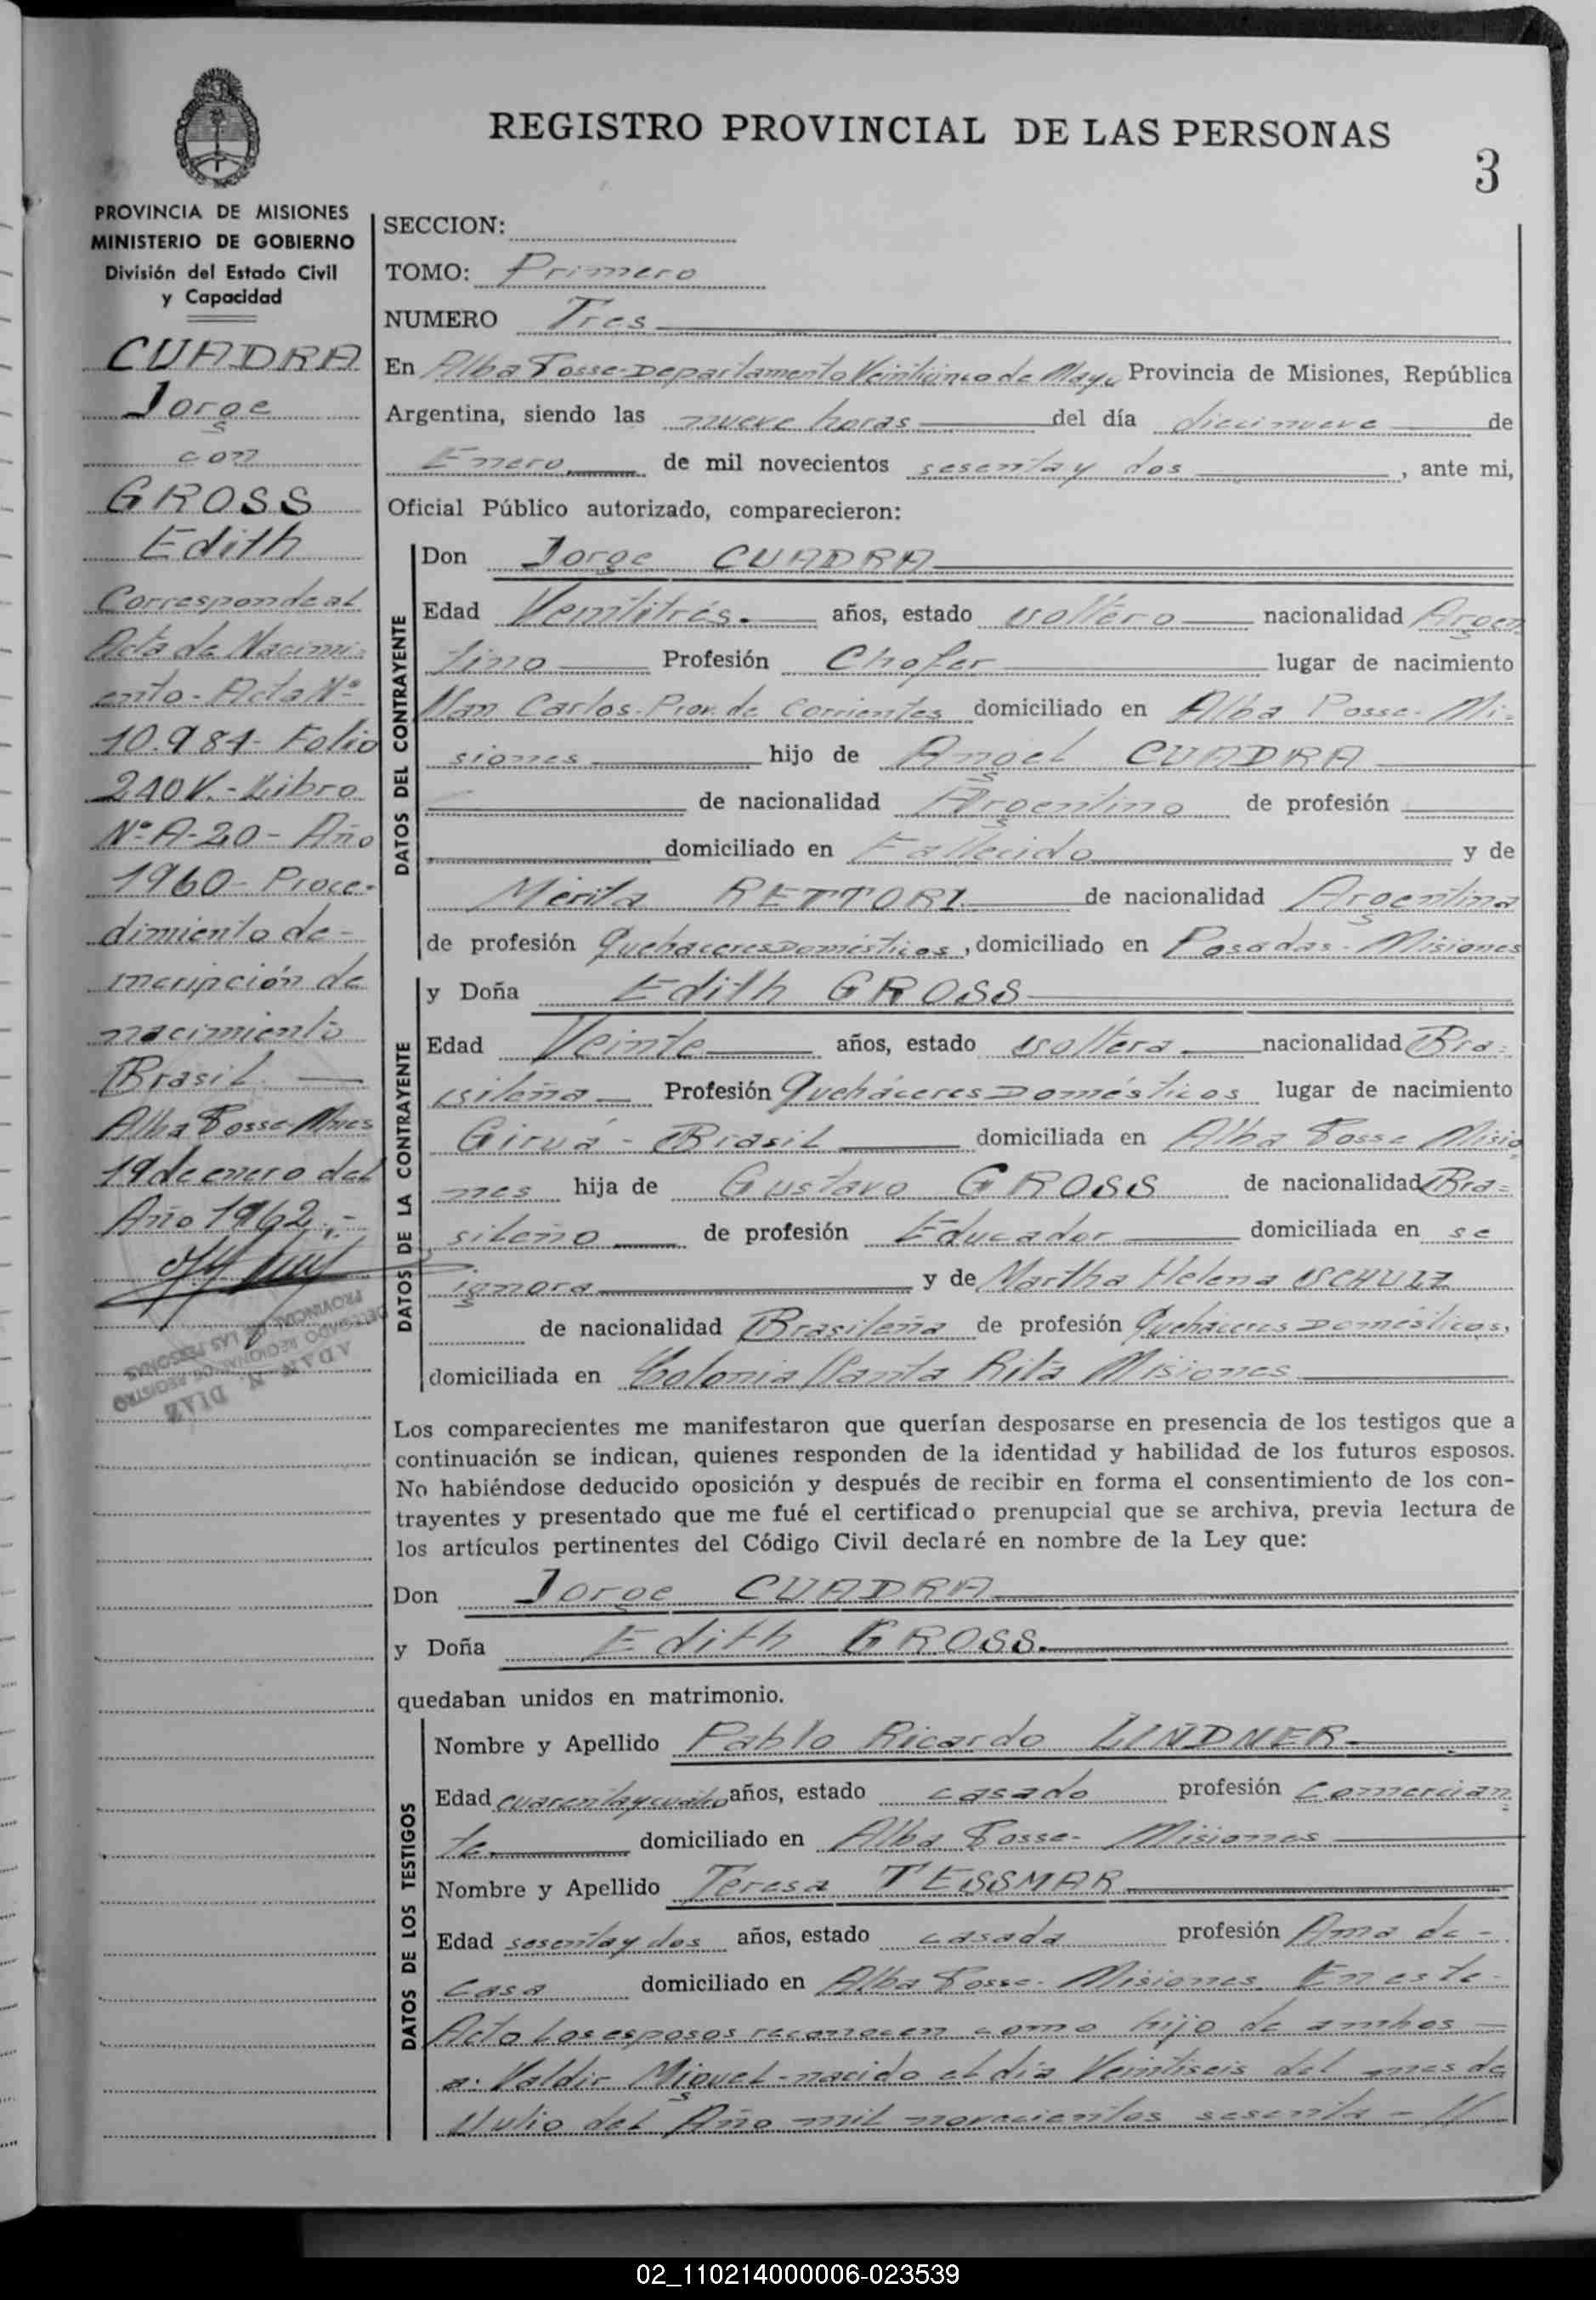 REGISTRO PROVINCIAL DE LAS PERSONAS
3
PROVINCIA DE MISIONES
MINISTERIO DE GOBIERNO
División del Estado Civil
y Capacidad
CUADRA
Jorge
con
GROSS
Edith
Corresponde al
Acta de Nacimi-
ento - Acta Nº
10.984- Folio
240V.- Libro
Nº A-20- Año
1960- Proce-
dimiento de-
incripción de
nacimiento
Brasil.
Alba Posse-Mnes
19 de enero del
Año 1962.-
DELEGADO REGIONAL DE REGISTRO
PROVINCIAL DE LAS PERSONAS
SECCION:
TOMO: Primero
NUMERO Tres
En Alba Posse-Departamento Veinticinco de Mayo Provincia de Misiones, República
Argentina, siendo las nueve horas del día diecinueve de
Enero de mil novecientos sesenta y dos, ante mi,
Oficial Público autorizado, comparecieron:
DATOS DEL CONTRAYENTE
Don Jorge CUADRA
Edad Veintitrés. años, estado soltero nacionalidad Argen
tino Profesión Chofer lugar de nacimiento
San Carlos-Prov. de Corrientes domiciliado en Alba Posse- Mi-
siones hijo de Angel CUADRA
de nacionalidad Argentino de profesión
domiciliado en Fallecido y de
Mérita RETTORI de nacionalidad Argentina
de profesión Quehaceres Domésticos, domiciliado en Posadas- Misiones
DATOS DE LA CONTRAYENTE
y Doña Edith GROSS
Edad Veinte años, estado soltera nacionalidad Bra-
sileña Profesión Queháceres Domésticos lugar de nacimiento
Giruá - Brasil domiciliada en Alba Posse Misio
nes hija de Gustavo GROSS de nacionalidad Bra-
sileño de profesión Educador domiciliada en se
ignora y de Martha Helena SCHULZ
de nacionalidad Brasileña de profesión Queháceres Domésticos,
domiciliada en Colonia Santa Rita Misiones
Los comparecientes me manifestaron que querían desposarse en presencia de los testigos que a
continuación se indican, quienes responden de la identidad y habilidad de los futuros esposos.
No habiéndose deducido oposición y después de recibir en forma el consentimiento de los con-
trayentes y presentado que me fué el certificado prenupcial que se archiva, previa lectura de
los artículos pertinentes del Código Civil declaré en nombre de la Ley que:
Don Jorge CUADRA
y Doña Edith GROSS.
quedaban unidos en matrimonio.
DATOS DE LOS TESTIGOS
Nombre y Apellido Pablo Ricardo LINDNER
Edad cuarentaycuatro años, estado casado profesión Comercian
te. domiciliado en Alba Posse- Misiones
Nombre y Apellido Teresa TESSMAR
Edad sesentay dos años, estado casada profesión Ama de-
Casa domiciliado en Alba Posse- Misiones. En este-
Acto los esposos reconocen como hijo de ambos-
a: Valdir Miguel-nacido el día Veintiseis del mes de
Julio del Año mil novecientos sesenta-//
02_110214000006-023539